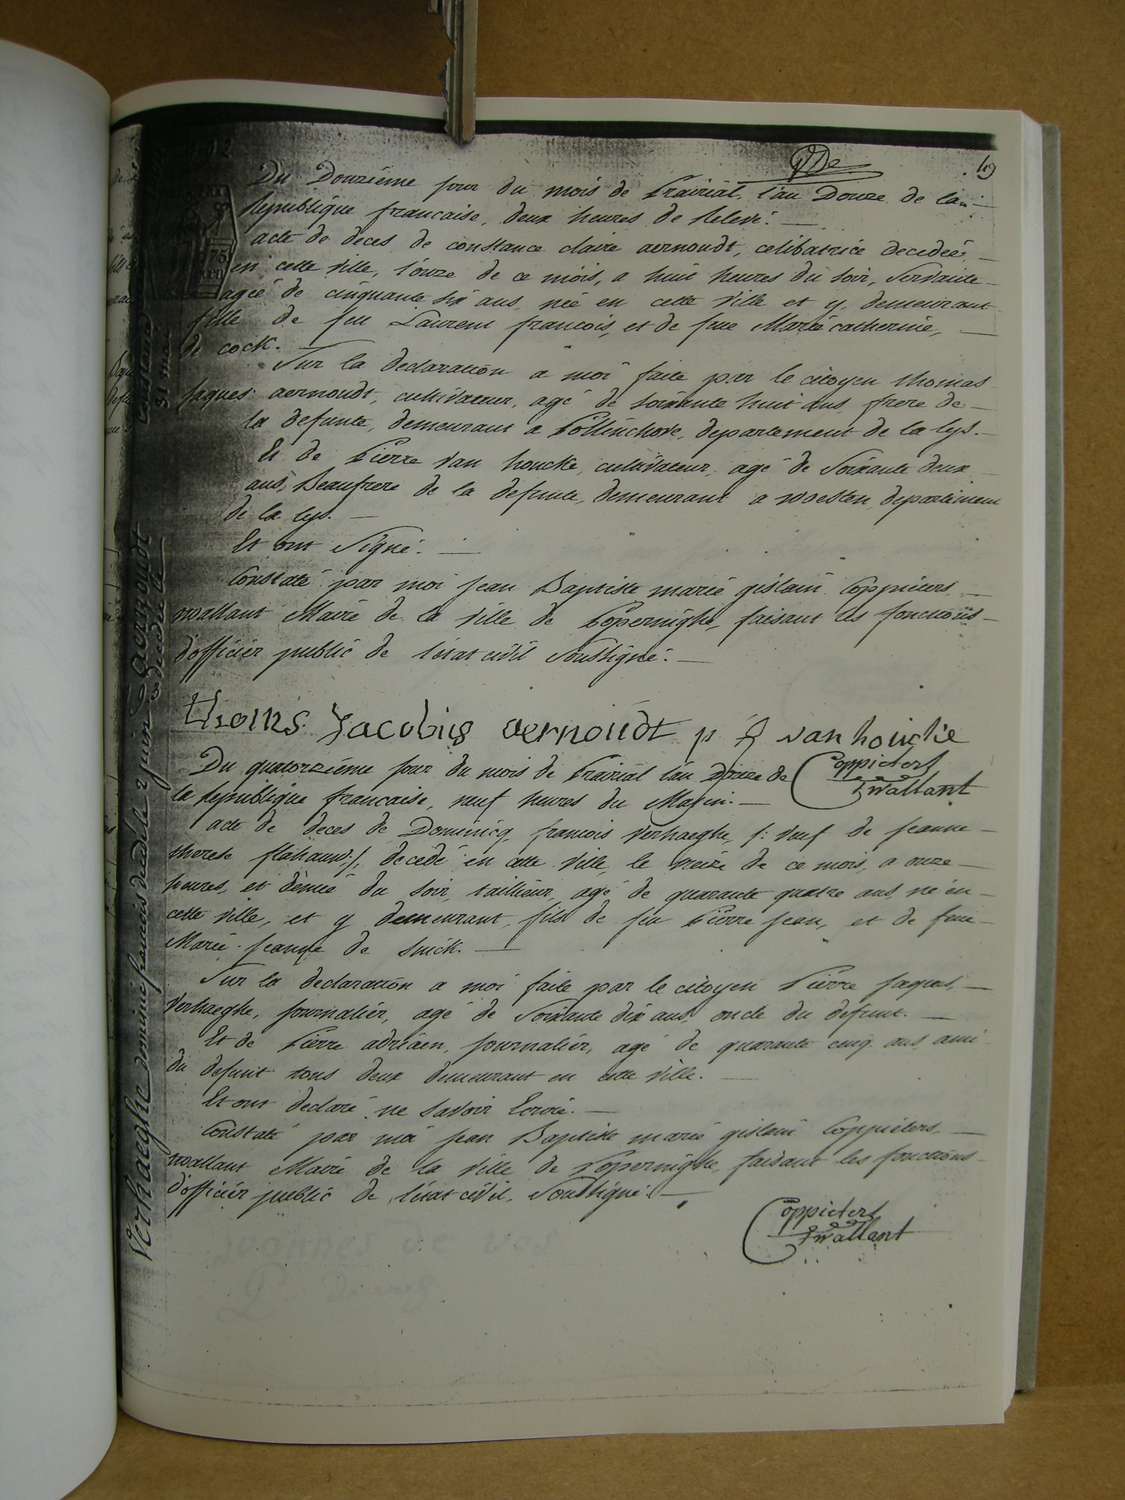 Du Douzième jour du mois de Prairial, l'an Douze de la
Republique française, deux heures de Relevé.
acte de deces de constance claire aernoudt, celibatrice decedeé
en cette ville, l'onze de ce mois, a huit heures du soir, servante
ageé de cinquante six ans, neé en cette ville et y demeurant
fille de feu Laurent francois, et de feue Marie catherine,
de cock.
Sur la declaration a moi faite par le citoyen thomas
jaques aernoudt, cultivateur, agé de soixante huit ans, frere de
la defunte, demeurant a Pollinchove, departement de la lys.
Et de Pierre van houcke, cultivateur, agé de soixante deux
ans, Beaufrere de la defunte, demeurant a woesten departement
de la lys.
Et ont Signé.
Constaté par moi jean Baptiste marie gislain Coppieters
wallant Maire de la ville de Poperinghe, faisant les fonctions
d'officier public de l'état civil Soussigné.
thoms jacobus aernoudt p j vanhoucke
Coppieters
wallant
Du quatorzième jour du mois de Prairial l'an Douze de
la Republique française, neuf heures du Matin.
acte de deces de Dominicq francois verhaeghe, /: veuf de jeanne
therese, decedé en cette ville, le treize de ce mois, a onze
heures, et demie du soir, tailleur, agé de quarante quatre ans, né en
cette ville, et y demeurant, fils de feu Pierre jean, et de feue
Marie jeanne de
Sur la declaration a moi faite par le citoyen Pierre jaques
verhaeghe, journalier, agé de soixante dix ans, oncle du defunt.
Et de Pierre adriaen, journalier, agé de quarante cinq ans, ami
du defunt tous deux demeurant en cette ville.
Et ont declaré ne savoir Ecrire.
Constaté par moi jean Baptiste marie gislain Coppieters
wallant Maire de la ville de Poperinghe, faisant les fonctions
d'officier public de l'état civil, Soussigné.
Coppieters
wallant
Aernoudt
Verhaeghe dominé francois decedé le 2 juin